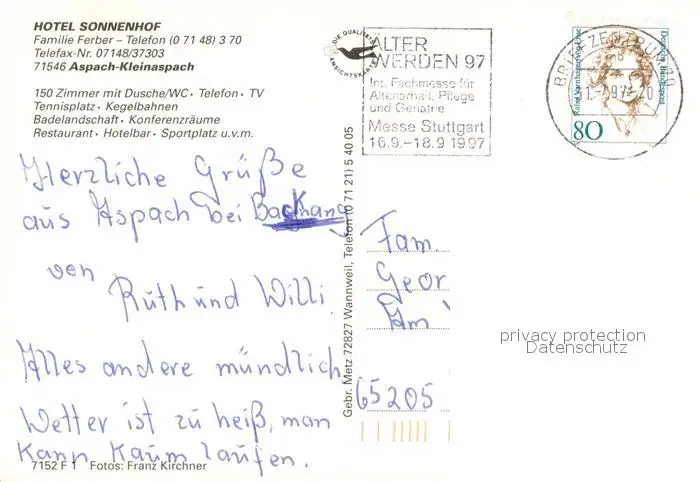 HOTEL SONNENHOF
Familie Ferber – Telefon (0 71 48) 3 70
Telefax-Nr. 07148/37303
71546 Aspach-Kleinaspach
150 Zimmer mit Dusche/WC · Telefon · TV
Tennisplatz · Kegelbahnen
Badelandschaft · Konferenzräume
Restaurant · Hotelbar · Sportplatz u.v.m.
Herzliche Grüße
aus Aspach bei Backnang
von
Ruth und Willi.
Alles andere mündlich
Wetter ist zu heiß, man
kann kaum laufen.
7152 F 1 Fotos: Franz Kirchner
Gebr. Metz 72827 Wannweil, Telefon (0 71 21) 5 40 05
DIE QUALITÄTS
ANSICHTSKARTE
ÄLTER
WERDEN 97
Int. Fachmesse für
Altenarbeit, Pflege
und Geriatrie
Messe Stuttgart
16.9.–18.9 1997
BRIEFZENTRUM 70
Deutsche Bundespost
Rahel Varnhagen von Ense
80
Fam.
Geor
Am
65205
privacy protection
Datenschutz